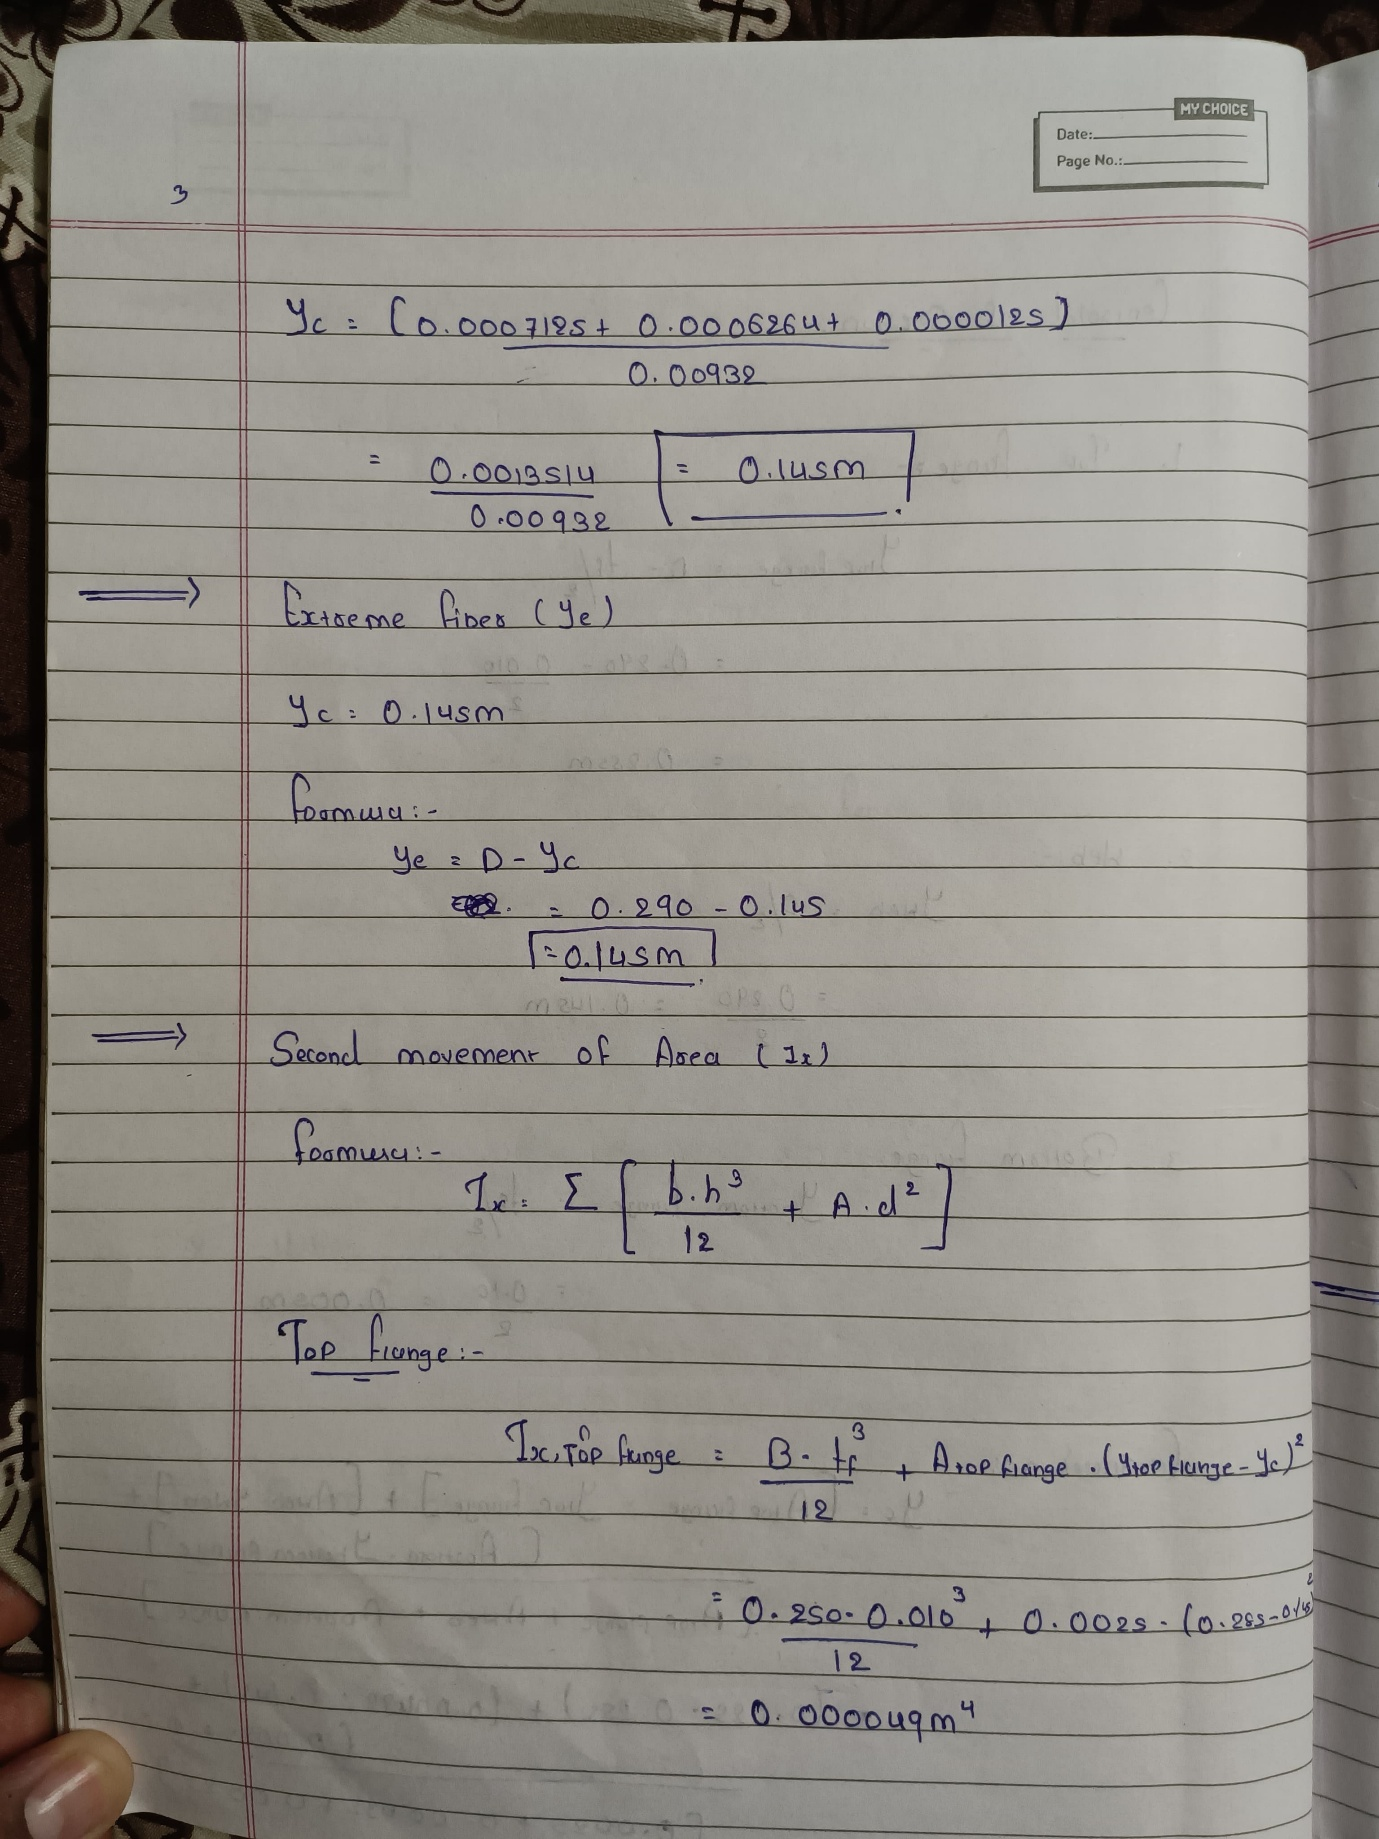 MY CHOICE
Date:
Page No.:
3
Yc = [0.0007125 + 0.0006264 + 0.0000125]
0.00932
= 0.0013514 = 0.145m
0.00932
Extreme fiber (Ye)
Yc = 0.145m
formula:-
Ye = D - Yc
= 0.290 - 0.145
= 0.145m
Second movement of Area (Ix)
formula:-
Ix = Σ [ b.h³ + A.d² ]
12
Top flange:-
Ix, Top flange = B. tf³ + Atop flange . (Ytop flange - Yc)²
12
= 0.250. 0.010³ + 0.0025 . (0.285 - 0.145)²
12
= 0.000049m⁴